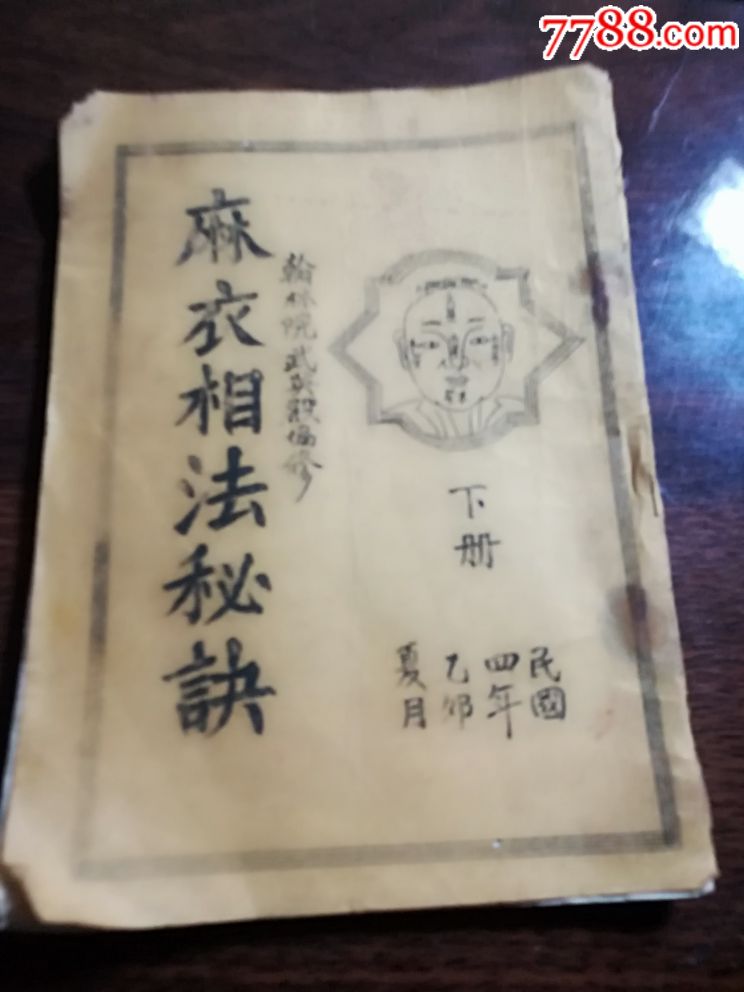 7788.com
麻衣相法秘訣
翰林院武英殿偏修
下册
民國
四年
乙卯
夏月